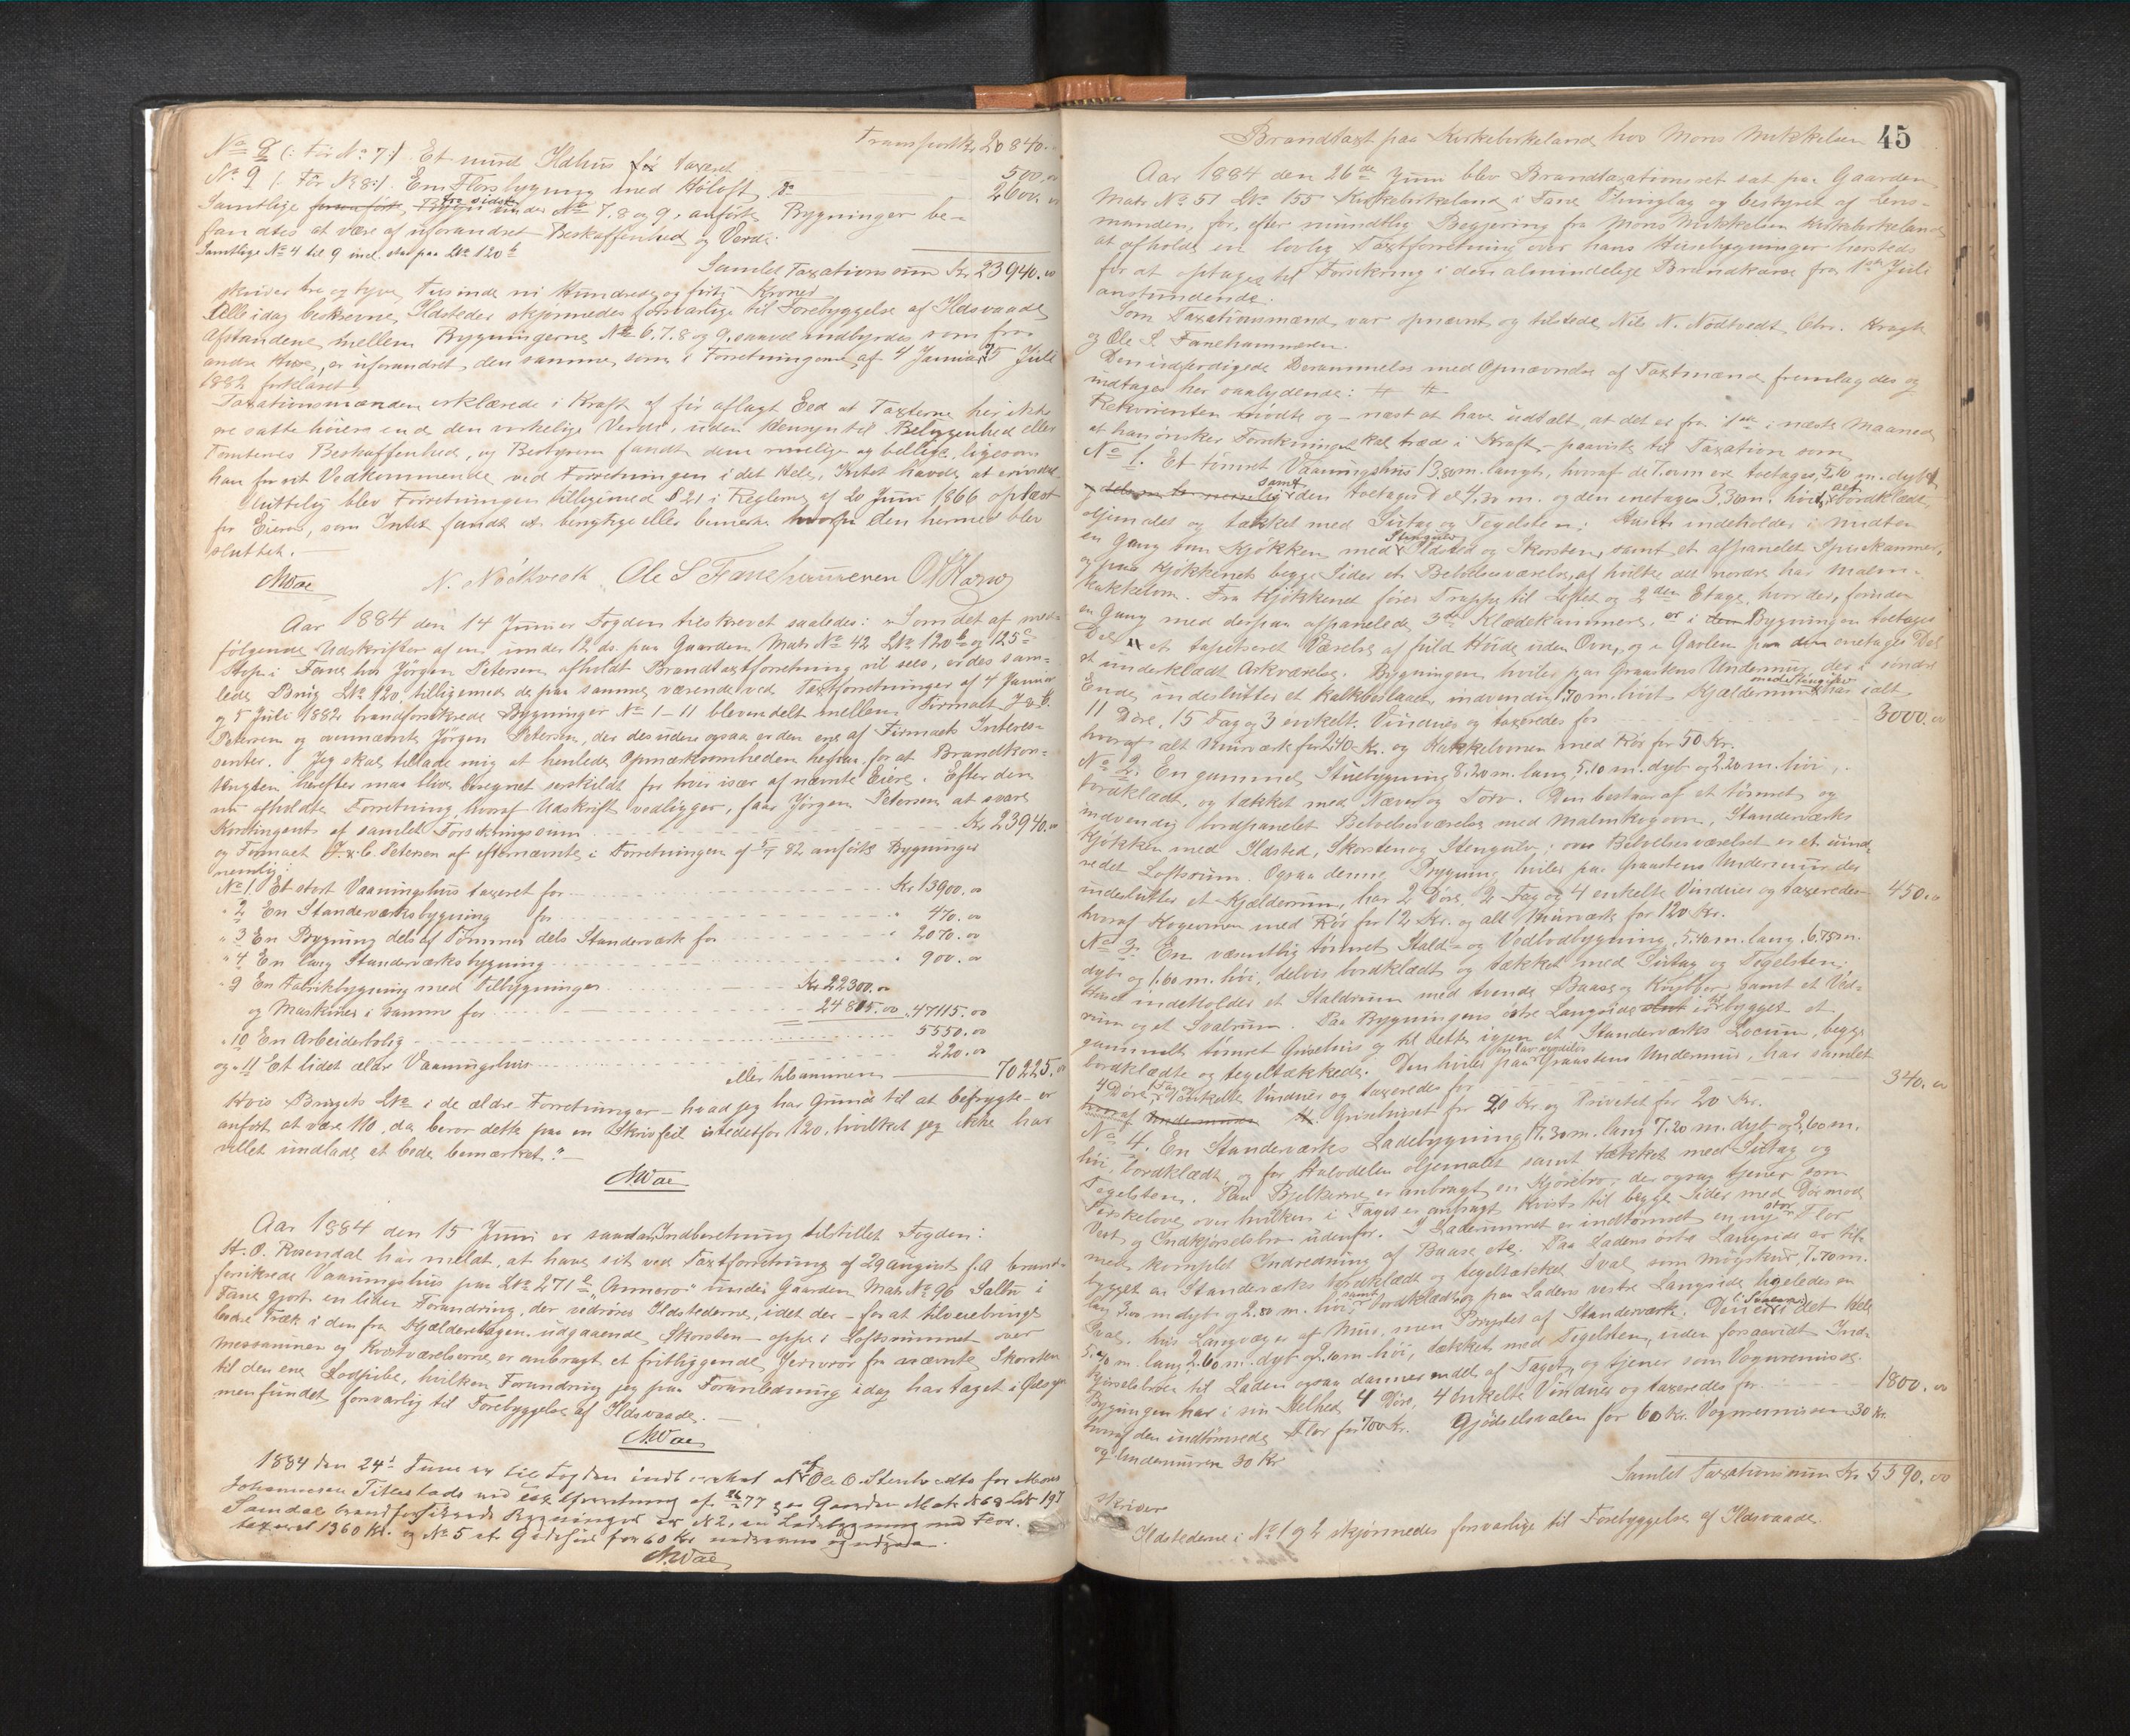 Transport Kr 20840.
No 8 (: Før No 7 :). Et muret Ildhus før taxeret 500.00
No 9 (: Før No 8 :). Em Florsbygning med Høloft do 2600.00
Samtlige under No 7, 8 og 9, anførte Bygninger be-
fandtes at være af uforandret Beskaffenhed og Værdi.
Samtlige No 4 til 9 incl. staa paa LNo 120 b
Samlet Taxationssum Kr 23940.00
skriver tre og tyve tusinde ni Hundrede og firti Kroner
Alle idag beskrevne Ildsteder skjønnedes forsvarlige til Forebyggelse af Ildsvaade
Afstandene mellem Bygningerne No 6, 7, 8 og 9, saavel indbyrdes som fra
andre Huse, er uforandret den samme som i Forretningerne af 4 Januar 5 Juli
1882 forklaret.
Taxationsmændene erklærede i Kraft af før aflagt Eed at Taxterne her ikke
ere satte høiere end den virkelige Værdi, uden Hensyn til Beliggenhed eller
Tomtens Beskaffenhed, og Bestyreren fandt dem rimelige og billige, ligesom
han for sit Vedkommende ved Forretningen i det Hele Intet havde at erindre
Sluttelig blev Forretningen tilligemed § 21 i Reglerne af 20 Juni 1866 oplæst
for Eieren, som Intet fandt at benytte eller bemærke hvorfor den hermed blev
sluttet. —
MWae N. Nødtvedt Ole S Fanehammeren
Aar 1884 den 14 Juni er Fogden tilskrevet saaledes: "Som det af med-
følgende Udskrifter af en under 12 ds. paa Gaarden Matr No 42 LNo 120 b og 125 c
Hop i Fane hos Jørgen Petersen afholdt Brandtaxtforretning vil sees, er des sam-
lede Brug LNo 120 tilligemed de paa samme værende ved Taxtforretninger af 4 Januar
og 5 Juli 1882 brandforsikrede Bygninger No 1-11 bleven delt mellem Firmaet J & C.
Petersen og ovennævnte Jørgen Petersen, der desuden ogsaa er den ene af Firmaets Interes-
senter. Jeg skal tillade mig at henlede Opmærksomheden herpaa for at Brandkon-
tingenten herefter maa blive beregnet særskildt for hver især af nævnte Eiere. Efter den
nu afholdte Forretning, hvoraf Udskrift vedligger, faar Jørgen Petersen at svare
Kontingent af samlet Forsikringssum Kr 23940.00
og Firmaet J. & C. Petersen af efternævnte i Forretningen af 5/7 82 anførte Bygninger
nemlig:
No 1. Et stort Vaaningshus taxeret for Kr 13900.00
" 2 En Standerværksbygning for " 470.00
" 3 En Bygning dels af Tømmer dels Standerværk for " 2070.00
" 4 En lang Standerværksbygning " 900.00
" 9 En Fabrikbygning med Tilbygninger Kr 22300.00
og Maskiner i samme for 24815.00 " 47115.00
" 10 En Arbeiderbolig 5550.00
og " 11 Et lidet ældre Vaaningshus 220.00
eller tilsammen 70225.00
Hvis Brugets LNo i de ældre Forretninger — hvad jeg har Grund til at befrygte — er
anført at være 110, da beror dette paa en Skrivfeil istedetfor 120, hvilket jeg ikke har
villet undlade at bede bemærket." —
MWae
Aar 1884 den 15 Juni er saadan Indberetning tilstillet Fogden:
H. O. Rosendal har meldt, at have sit ved Taxtforretning af 29 August f.A brand-
forsikrede Vaaningshus paa LNo 271 b "Annero" under Gaarden Matr No 96 Sælen i
Fane gjort en liden Forandring, der vedrører Ildstederne, idet der — for at tilveiebringe
bedre Træk i den fra Kjælderetagen udgaaende Skorsten — oppe i Loftsrummet over
Messaninen og Kvistværelserne er anbragt et fritliggende Jernrør fra nævnte Skorsten
til den ene Lodpibe, hvilken Forandring jeg paa Foranledning idag har taget i Øiesyn
men fundet forsvarlig til Forebyggelse af Ildsvaade. —
MWae
1884 den 24d Juni er til Fogden indberettet at af Ole O. Stenhvedts for Mons
Johannesen Titlestads ved Taxtforretning af 77 paa Gaarden Matr No 69 LNo 197
Samdal brandforsikrede Bygninger er No 2, en Ladebygning med Flor
taxeret 1360 Kr. og No 5 et Gjedehus for 60 Kr nedrevne og udgaar.
MWae
45
Brandtaxt paa Kirkebirkeland hos Mons Mikkelsen
Aar 1884 den 26de Juni blev Brandtaxationsret sat paa Gaarden
Matr No 51 LNo 155 Kirkebirkeland i Fane Thinglag og bestyret af Lens-
manden, for, efter mundtlig Begjering fra Mons Mikkelsen Kirkebirkeland
at afholde en lovlig Taxtforretning over hans Husebygninger hersteds
for at optages til Forsikring i den almindelige Brandkasse fra 1ste Juli
anstundende.
Som Taxationsmænd var opnævnt og tilstede Nils N. Nødtvedt, Chr. Kragh
og Ole S. Fanehammeren.
Den udfærdigede Berammelse med Opnævnelse af Taxtmænd fremlagdes og
indtages her saalydende: # #
Rekvirenten mødte og — næst at have udtalt, at det er fra 1ste i næste Maaned
at han ønsker Forsikringen skal træde i Kraft — paaviste til Taxation som
No 1. Et tømret Vaaningshus 13.80 m. langt, hvoraf de 7.00 m ere toetages, 5.10 m. dybt,
samt den toetages Del 4.30 m. og den enetages 3.30 m. høit, alt bordklædt,
oljemalet og tækket med Sutag og Tegelsten: Huset indeholder i Midten
en Gang som Kjøkken med Stengulv Ildsted og Skorsten, samt et afpanelet Spisekammer,
og paa Kjøkkenets begge Sider et Beboelsesværelse, af hvilke det nordre har Malm-
kakkelovn. Fra Kjøkkenet fører Trappe til Loftet og 2den Etage, hvor der, foruden
en Gang med derpaa afpanelede 3de Klædekammere, er i Bygningen toetages
Del et tapetseret Værelse af fuld Høide uden Ovn, og i Gavlen paa den enetages Del
et underklædt Arkværelse. Bygningen hviler paa Graastens Undermur, der i søndre
Ende indeslutter et kalkbeslaaet, indvendig 1.70 m. høit Kjælderrum med Stengulv har ialt
11 Døre, 15 Fag og 3 enkelte Vinduer og taxeredes for 3000.00
hvoraf alt Murværk for 240 Kr. og Kakkelovnen med Rør for 50 Kr.
No 2. En gammel Stuebygning 8.20 m. lang 5.10 m. dyb og 2.20 m. høi,
bordklædt, og tækket med Næver og Torv. Den bestaar af et tømret og
indvendig bordpanelet Beboelsesværelse med Malmkogovn, Standerværks
Kjøkken med Ildsted, Skorsten og Stengulv; over Beboelsesværelset er et uind-
redet Loftsrum. Ogsaa denne Bygning hviler paa Graastens Undermur der
indeslutter et Kjælderrum, har 2 Døre, 2 Fag og 4 enkelte Vinduer og taxeredes 450.00
hvoraf Kogeovnen med Rør for 12 Kr. og alt Murværk for 120 Kr.
No 3. En væsentlig tømret Stald- og Vedbodbygning, 5.40 m. lang, 6.75 m.
dyb og 1.60 m. høi, delvis bordklædt og tækket med Sutag og Tegelsten;
Huset indeholder et Staldrum med tvende Baase og Krybber samt et Ved-
rum og et Svalrum. Paa Bygningens østre Langside er tilbygget et
gammelt tømret Grisehus og til dette igjen et Standerværks Locum, begge
bordklædte og tegeltækkede. Den hviler paa Graastens Undermur, har samlet
4 Døre, 1 Fag og enkelte Vinduer og taxeredes for 340.00
Grisehuset for 20 Kr og Privetet for 20 Kr.
No 4. En Standerværks Ladebygning 17.30 m. lang 7.20 m. dyb og 2.60 m.
høi, bordklædt, og for Halvdelen oljemalet samt tækket med Sutag og
Tegelsten. Paa Bjelkerne er anbragt en Kjørebro, der ogsaa tjener som
Tærskelove, over hvilken i Taget er anbragt Kviste til begge Sider med Dør mod
Vest og Indkjørselsbro udenfor. I Laderummet er indtømret en ny stor Flor
med komplet Indredning af Baase etc. Paa Ladens østre Langside er til-
bygget en Standerværks bordklædt og tegeltækket Sval, som Møgskur, 7.70 m.
lang 3.00 m dyb og 2.80 m. høi, samt bordklædt og paa Ladens vestre Langside ligeledes en
Sval, hvis Langvæg er af Mur, men Brystet af Standerværk. Den er i det Hele
5.90 m. lang 2.60 m. dyb og 2.10 m høi, tækket med Tegelsten, uden forsaavidt Ind-
kjørselsbroen til Laden ogsaa danner endel af Taget, og tjener som Vognremisse.
Bygningen har i sin Helhed 4 Døre, 4 enkelte Vinduer og taxeredes for 1800.00
hvoraf den indtømrede Flor for 700 Kr. Gjødselsvalen for 60 Kr. Vognremissen 30 Kr.
og Undermuren 30 Kr
Samlet Taxationssum Kr 5590.00
skriver
Ildstederne i No 1 og 2 skjønnedes forsvarlige til Forebyggelse af Ildsvaade.